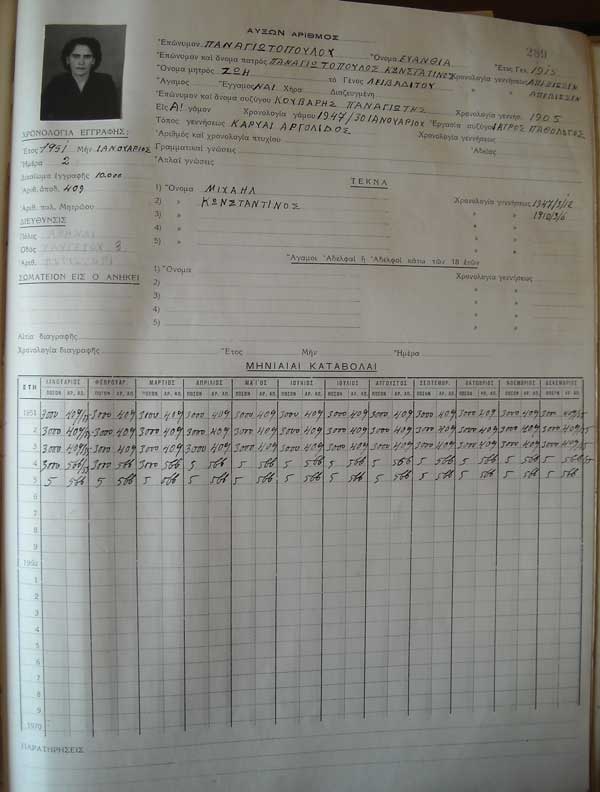 ΑΥΞΩΝ ΑΡΙΘΜΟΣ
289
Ἐπώνυμον ΠΑΝΑΓΙΩΤΟΠΟΥΛΟΥ Ὄνομα ΕΥΑΝΘΙΑ Ἔτος Γεν. 1915
Ἐπώνυμον καὶ ὄνομα πατρὸς ΠΑΝΑΓΙΩΤΟΠΟΥΛΟΣ ΚΩΝΣΤΑΝΤΙΝΟΣ Χρονολογία γεννήσεως
Ὄνομα μητρὸς ΖΩΗ τὸ Γένος ΛΕΙΒΑΔΙΤΟΥ
Ἄγαμος Ἔγγαμος ΝΑΙ Χήρα Διαζευγμένη
Ἐπώνυμον καὶ ὄνομα συζύγου ΚΟΥΒΑΡΗΣ ΠΑΝΑΓΙΩΤΗΣ Χρονολογία γεννήσ. 1905
Εἰς Α! γάμον Χρονολογία γάμου 1947/30 ΙΑΝΟΥΑΡΙΟΥ Ἐργασία συζύγου
Τόπος γεννήσεως ΚΑΡΥΑΙ ΑΡΓΟΛΙΔΟΣ Χρονολογία γεννήσεως
Ἀριθμὸς καὶ χρονολογία πτυχίου Ἀδείας
Γραμματικαὶ γνώσεις
Ἁπλαῖ γνώσεις
ΧΡΟΝΟΛΟΓΙΑ ΕΓΓΡΑΦΗΣ:
Ἔτος 1951 Μὴν ΙΑΝΟΥΑΡΙΟΣ
Ἡμέρα 2
Δικαίωμα ἐγγραφῆς 10.000
Ἀριθ. ἀποδ. 409
Ἀριθ. πολ. Μητρώου
ΔΙΕΥΘΥΝΣΙΣ
Πόλις ΑΘΗΝΑΙ
Ὁδὸς 3
Ἀριθ.
ΣΩΜΑΤΕΙΟΝ ΕΙΣ Ο ΑΝΗΚΕΙ
ΤΕΚΝΑ
1) Ὄνομα ΜΙΧΑΗΛ Χρονολογία γεννήσεως 1947/3/12
2) » ΚΩΝΣΤΑΝΤΙΝΟΣ » »
3) » » »
4) » » »
5) » » »
Ἄγαμοι Ἀδελφαὶ ἢ Ἀδελφοὶ κάτω τῶν 18 ἐτῶν
1) Ὄνομα Χρονολογία γεννήσεως
2) » »
3) » »
4) » »
5) » »
Αἰτία διαγραφῆς
Χρονολογία διαγραφῆς Ἔτος Μὴν Ἡμέρα
ΜΗΝΙΑΙΑΙ ΚΑΤΑΒΟΛΑΙ
ΕΤΗ ΙΑΝΟΥΑΡΙΟΣ ΦΕΒΡΟΥΑΡ. ΜΑΡΤΙΟΣ ΑΠΡΙΛΙΟΣ ΜΑΪΟΣ ΙΟΥΝΙΟΣ ΙΟΥΛΙΟΣ ΑΥΓΟΥΣΤΟΣ ΣΕΠΤΕΜΒΡ. ΟΚΤΩΒΡΙΟΣ ΝΟΕΜΒΡΙΟΣ ΔΕΚΕΜΒΡΙΟΣ
ΠΟΣΟΝ ΑΡ. ΑΠ. ΠΟΣΟΝ ΑΡ. ΑΠ. ΠΟΣΟΝ ΑΡ. ΑΠ. ΠΟΣΟΝ ΑΡ. ΑΠ. ΠΟΣΟΝ ΑΡ. ΑΠ. ΠΟΣΟΝ ΑΡ. ΑΠ. ΠΟΣΟΝ ΑΡ. ΑΠ. ΠΟΣΟΝ ΑΡ. ΑΠ. ΠΟΣΟΝ ΑΡ. ΑΠ. ΠΟΣΟΝ ΑΡ. ΑΠ. ΠΟΣΟΝ ΑΡ. ΑΠ. ΠΟΣΟΝ ΑΡ. ΑΠ.
1951 3000 409 3000 409 3000 409 3000 409 3000 409 3000 409 3000 409 3000 409 3000 409 3000 409 3000 409 3000 409
2 3000 409 3000 409 3000 409 3000 409 3000 409 3000 409 3000 409 3000 409 3000 409 3000 409 3000 409 3000 409
3 3000 409 3000 409 3000 409 3000 409 3000 409 3000 409 3000 409 3000 409 3000 409 3000 409 3000 409 3000 409
4 3000 566 3000 566 3000 566 5 566 5 566 5 566 5 566 5 566 5 566 5 566 5 566 5 566
5 5 566 5 566 5 566 5 566 5 566 5 566 5 566 5 566 5 566 5 566 5 566 5 566
6
7
8
9
1960
1
2
3
4
5
6
7
8
9
1970
ΠΑΡΑΤΗΡΗΣΕΙΣ